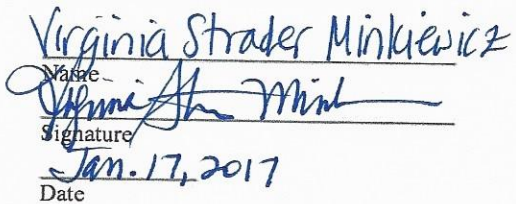 Virginia Strader Minkiewicz
Name
Signature
Jan. 17, 2017
Date